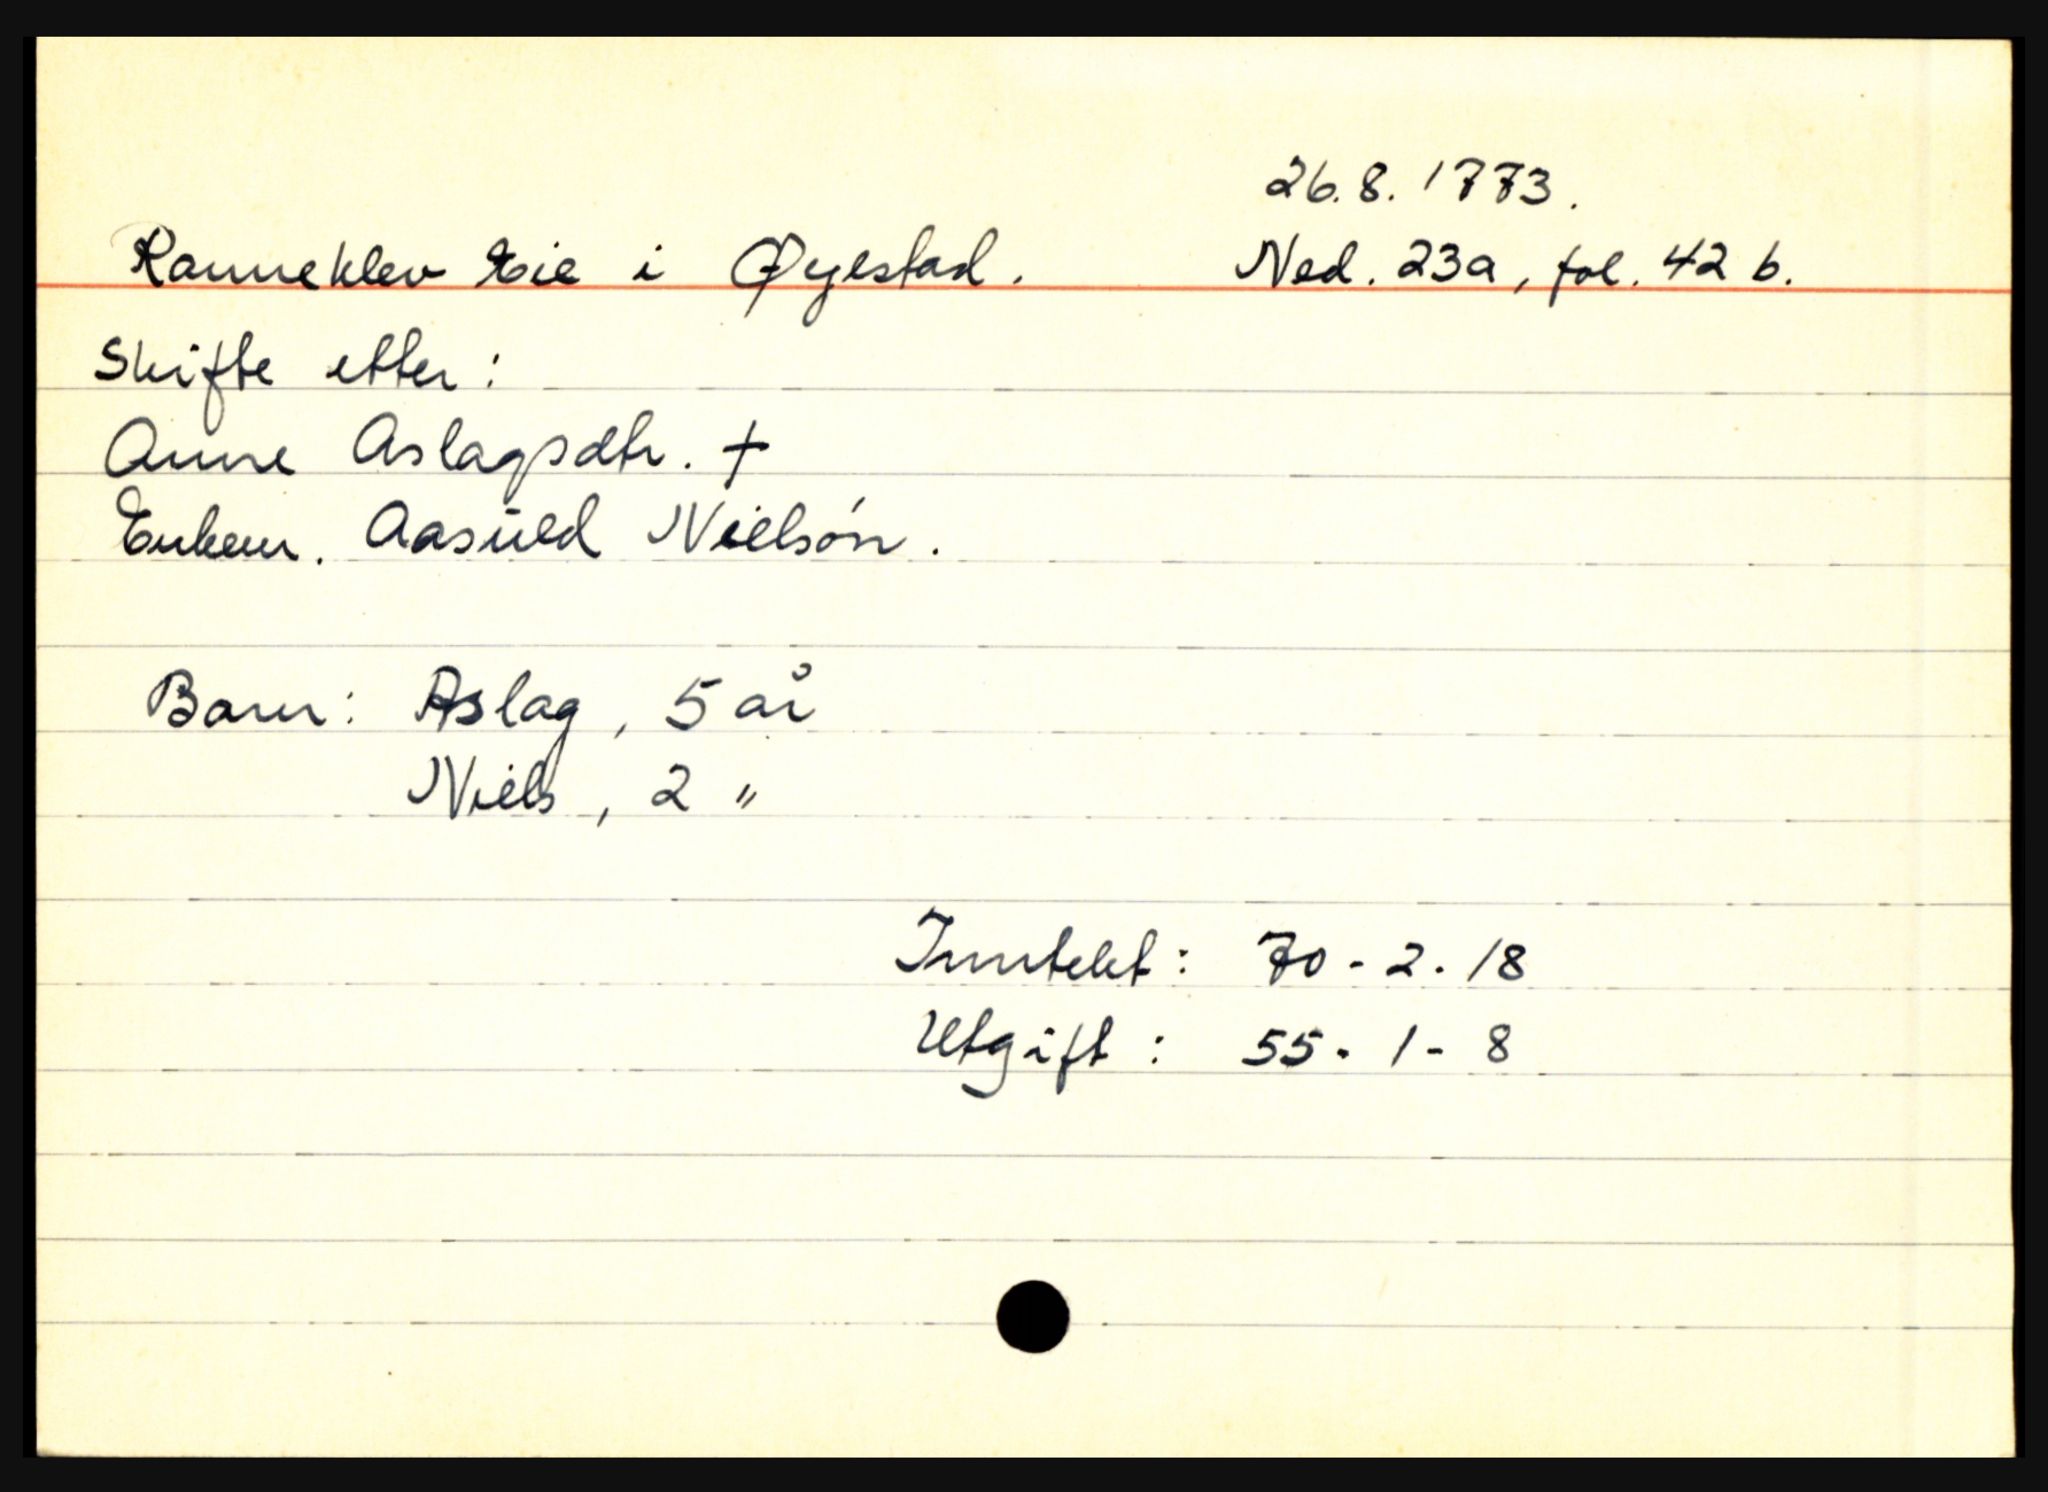 26.8. 1773.
Ranneklev Eie i Øyestad. Ned. 23a, fol. 42 b.
Skifte etter:
Anne Aslagsdtr. †
Enkem. Aasuld Nielsøn.
Barn: Aslag, 5 år
Niels, 2 "
Inntekt: 70 - 2 - 18
Utgift: 55 - 1 - 8